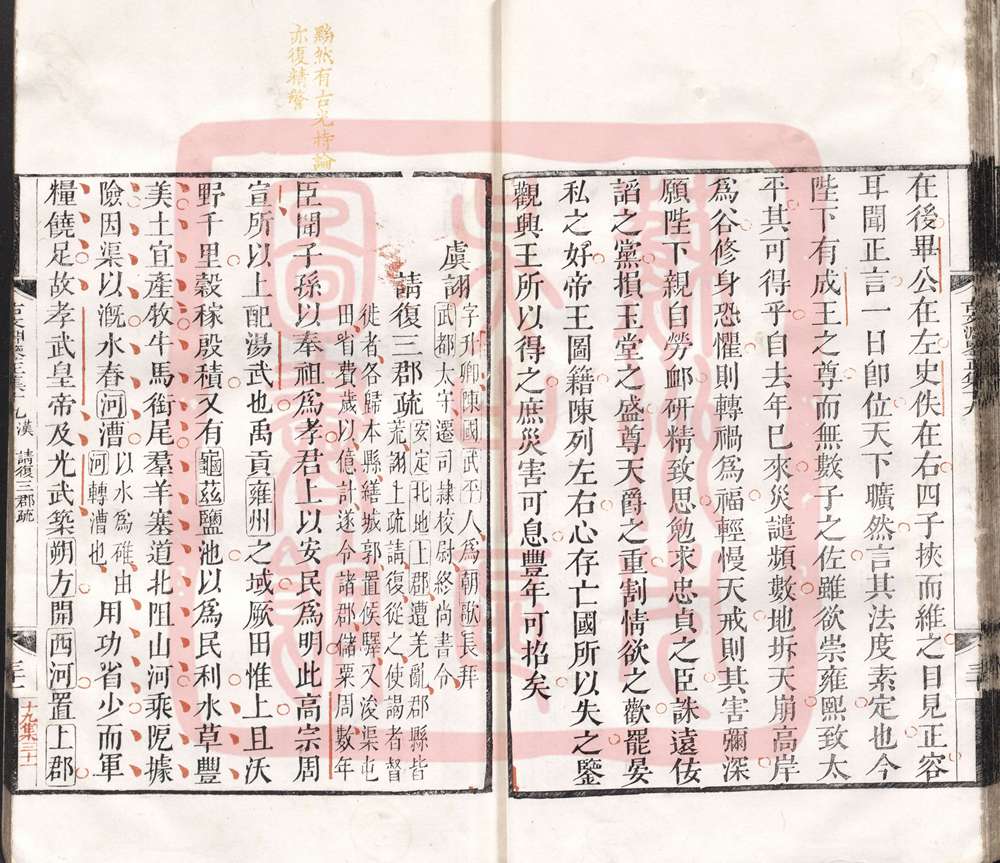 在後畢公在左史佚在右四子挾而維之目見正容
耳聞正言一日卽位天下曠然言其法度素定也今
陛下有成王之尊而無數子之佐雖欲崇雍熙致太
平其可得乎自去年已來災譴頻數地坼天崩高岸
爲谷修身恐懼則轉禍爲福輕慢天戒則其害彌深
願陛下親自勞䘏研精致思勉求忠貞之臣誅遠佞
諂之黨損玉堂之盛尊天爵之重割情欲之歡罷宴
私之好帝王圖籍陳列左右心存亡國所以失之鑒
觀興王所以得之庶災害可息豐年可招矣
黝然有古光持論
亦復精警
虞詡字升卿陳國武平人爲朝歌長拜
武都太守遷司隷校尉終尚書令
請復三郡疏安定北地上郡遭羌亂郡縣皆
荒詡上疏請復從之使謁者督
徙者各歸本縣繕城郭置候驛又浚渠屯
田省費歲以億計遂令諸郡儲粟周數年
臣聞子孫以奉祖爲孝君上以安民爲明此高宗周
宣所以上配湯武也禹貢雍州之域厥田惟上且沃
野千里穀稼殷積又有龜茲鹽池以爲民利水草豐
美土宜產牧牛馬銜尾羣羊塞道北阻山河乘阸據
險因渠以漑水春河漕以水爲碓由
河轉漕也用功省少而軍
糧饒足故孝武皇帝及光武築朔方開西河置上郡
漢 請復三郡疏
十九集三十一